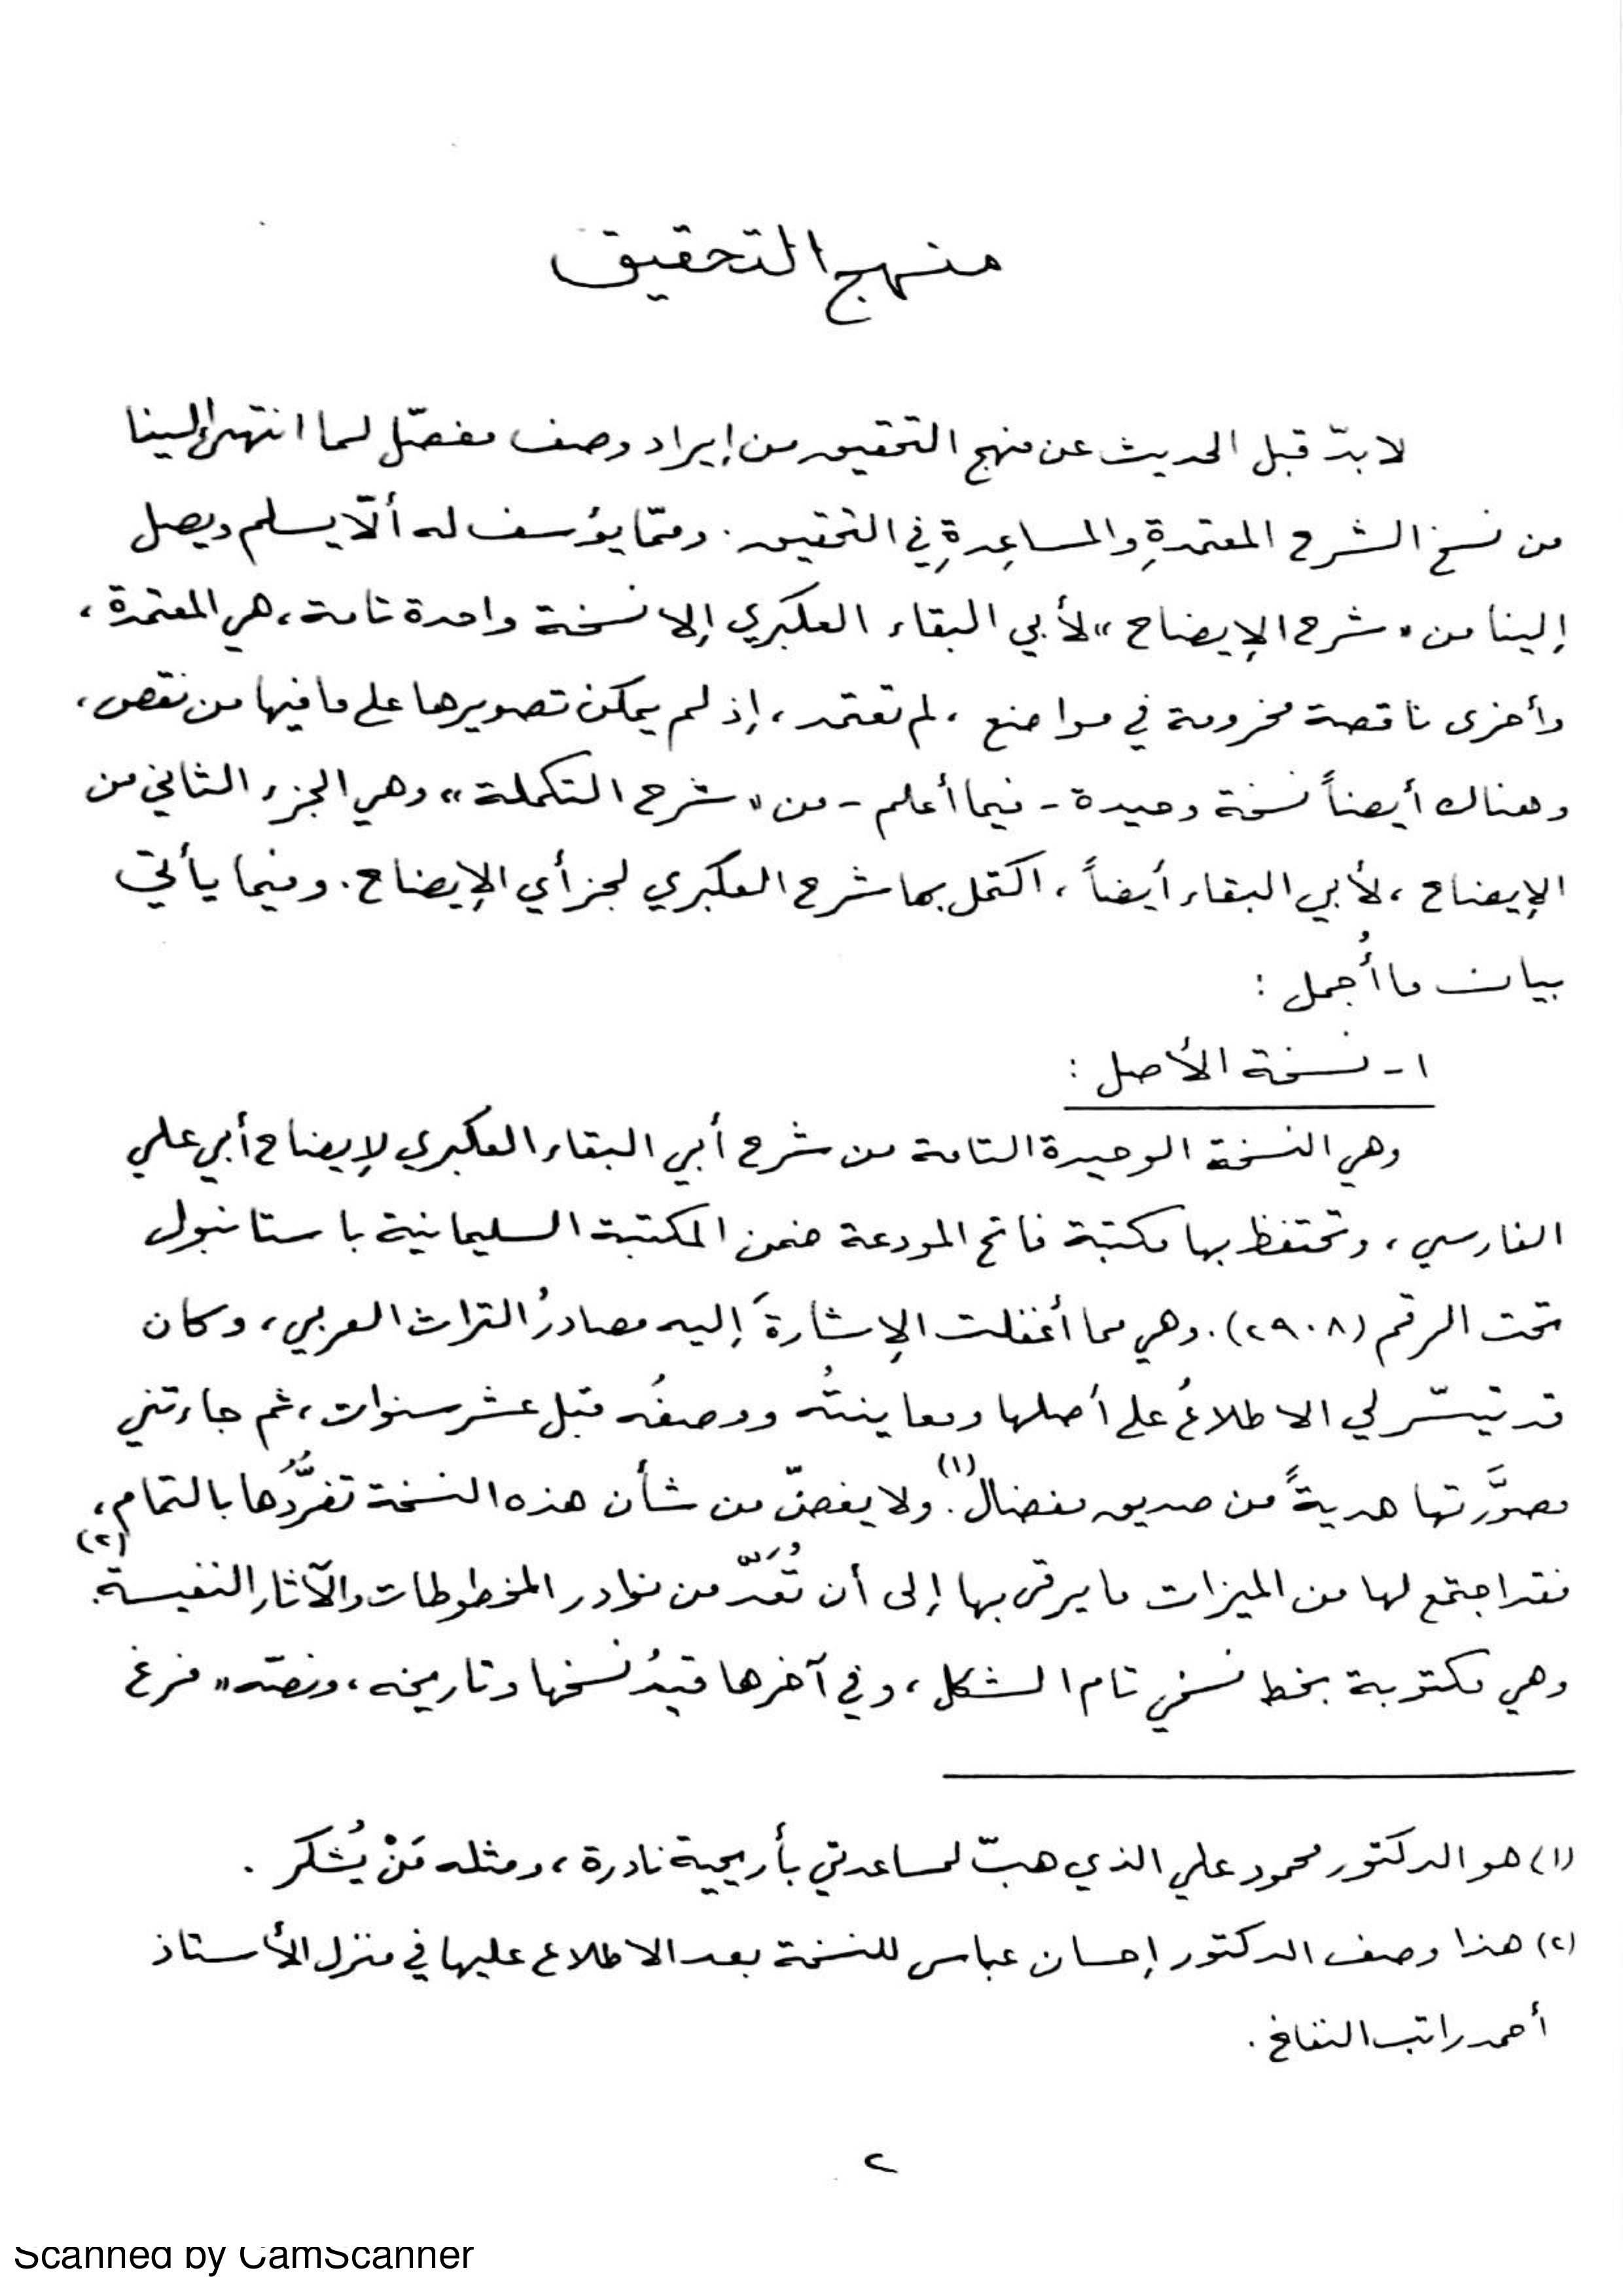 منهج التحقيق
لا بدّ قبل الحديث عن منهج التحقيق من إيراد وصف مفصّل لما انتهى إلينا
من نسخ الشرح المعتمدةِ والمساعِدةِ في التحقيق. وممّا يؤسف له ألّا يسلم ويصل
إلينا من «شرح الإيضاح» لأبي البقاء العكبري إلا نسخة واحدة تامة، هي المعتمدة،
وأخرى ناقصة مخرومة في مواضع، لم تعتمد، إذ لم يمكن تصويرها على ما فيها من نقص،
وهناك أيضاً نسخة وحيدة - فيما أعلم - من «شرح التكملة» وهي الجزء الثاني من
الإيضاح، لأبي البقاء أيضاً، اكتمل بها شرح العكبري لجزأي الإيضاح. وفيما يأتي
بيان ما أُجمل :
١- نسخة الأصل :
وهي النسخة الوحيدة التامة من شرح أبي البقاء العكبري لإيضاح أبي علي
الفارسي، وتحتفظ بها مكتبة فاتح المودعة ضمن المكتبة السليمانية باستانبول
تحت الرقم (٢٩٠٨). وهي مما أغفلت الإشارةَ إليه مصادرُ التراث العربي، وكان
قد تيسّر لي الاطلاعُ على أصلها ومعاينتُه ووصفُه قبل عشر سنوات، ثم جاءتني
مصوَّرتها هديةً من صديق مفضال(١). ولا يغضّ من شأن هذه النسخة تفرُّدُها بالتمام،
فقد اجتمع لها من الميزات ما يرقى بها إلى أن تُعَدّ من نوادر المخطوطات والآثار النفيسة(٢).
وهي مكتوبة بخط نسخي تام الشكل، وفي آخرها قيدُ نسخها وتاريخه، ونصّه «فرغ
(١) هو الدكتور محمود علي الذي هبّ لمساعدتي بأريحية نادرة، ومثله مَنْ يُشكر .
(٢) هذا وصف الدكتور إحسان عباس للنسخة بعد الاطلاع عليها في منزل الأستاذ
أحمد راتب النفاخ .
٢
Scanned by CamScanner